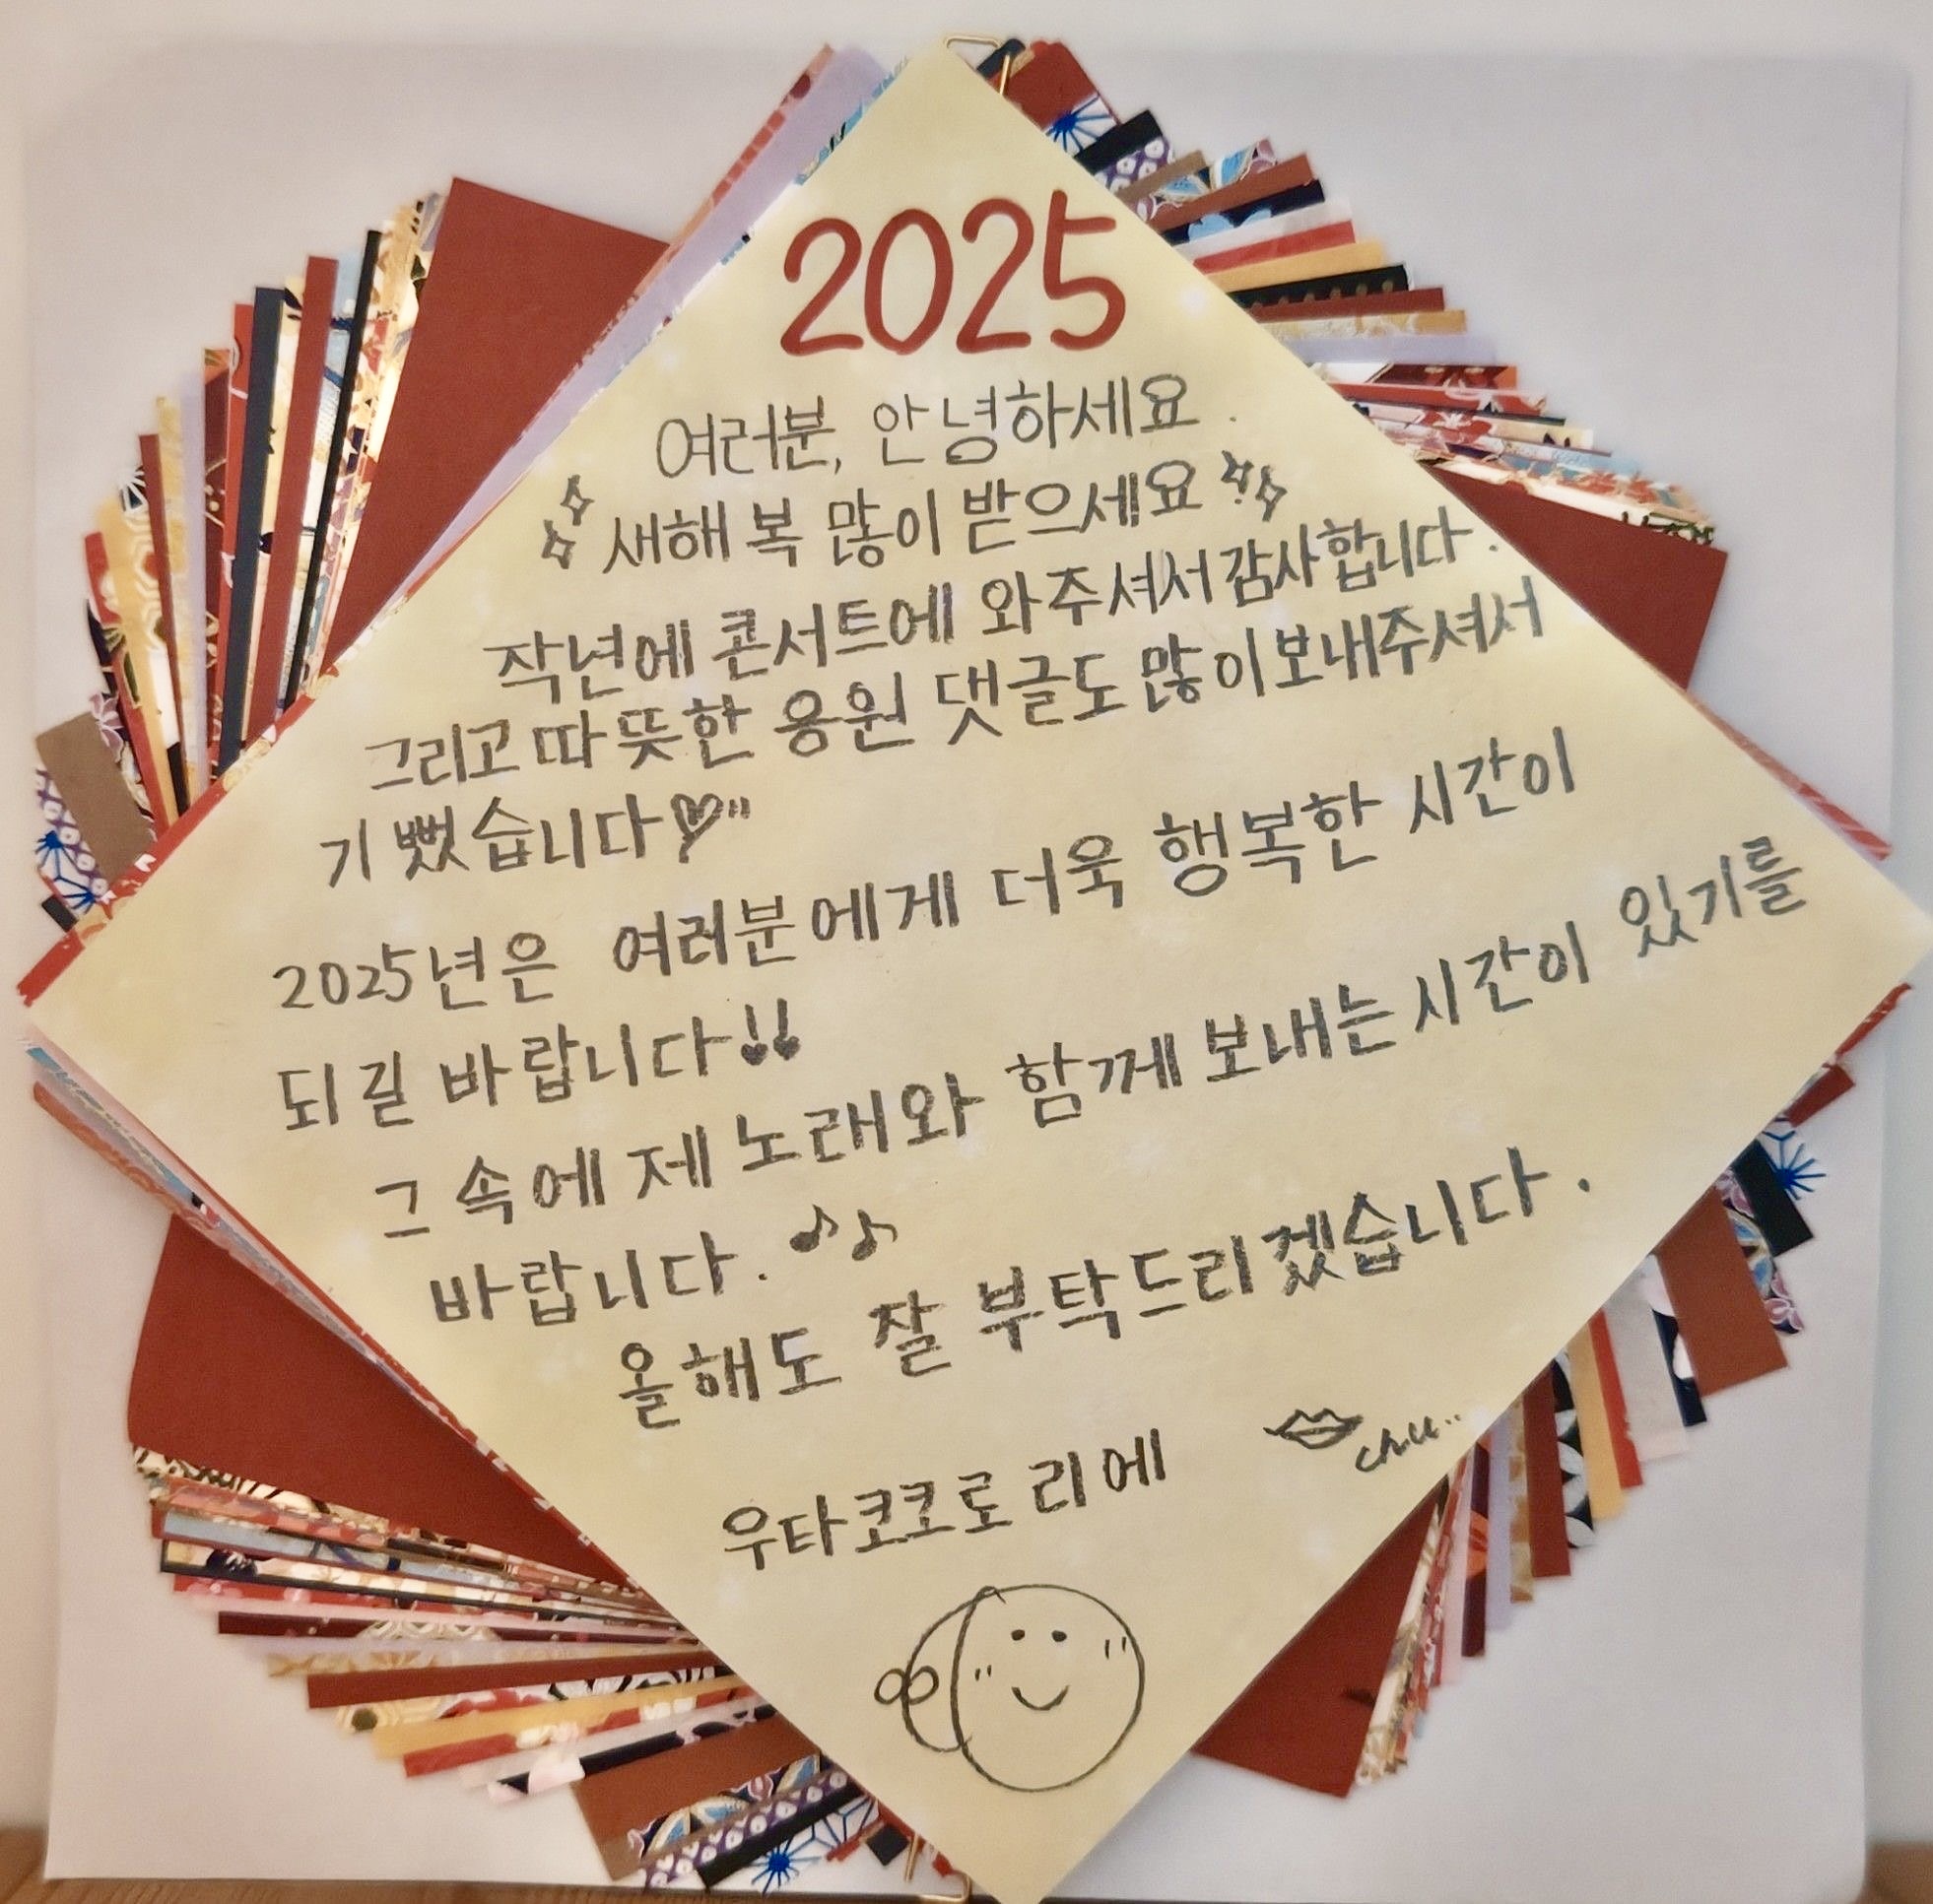 2025
여러분, 안녕하세요.
새해 복 많이 받으세요
작년에 콘서트에 와주셔서 감사합니다.
그리고 따뜻한 응원 댓글도 많이 보내주셔서
기뻤습니다
2025년은 여러분에게 더욱 행복한 시간이
되길 바랍니다!!
그 속에 제 노래와 함께 보내는 시간이 있기를
바랍니다.
올해도 잘 부탁드리겠습니다.
chu..
우타코코로리에